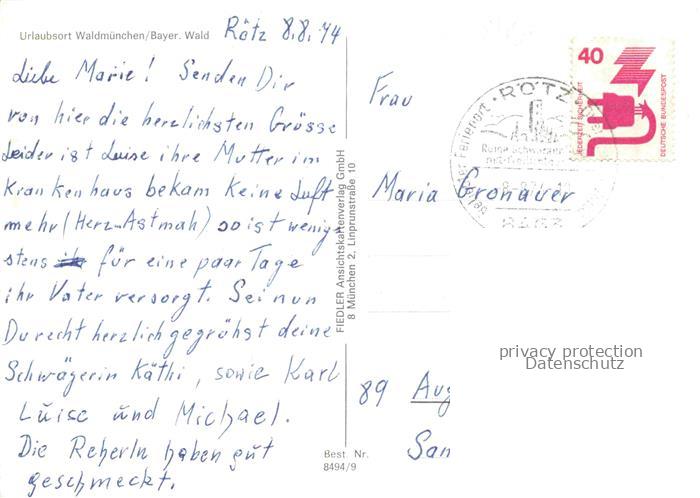 Urlaubsort Waldmünchen/Bayer. Wald
Rötz 8.8.74
Liebe Marie! Senden Dir
von hier die herzlichsten Grüsse
Leider ist Luise ihre Mutter im
Krankenhaus bekam keine Luft
mehr (Herz-Astmah) so ist wenig-
stens für eine paar Tage
ihr Vater versorgt. Sei nun
Du recht herzlich gegrühst deine
Schwägerin Käthi, sowie Karl
Luise und Michael.
Die Reherln haben gut
geschmeckt.
FIEDLER Ansichtskartenverlag GmbH
8 München 2, Linprunstraße 10
Best. Nr.
8494/9
Frau
Maria Gronauer
89 Aug
San
40
JEDERZEIT SICHERHEIT
DEUTSCHE BUNDESPOST
RÖTZ
Ferienort
Ruine Schwarzenburg
8463
privacy protection
Datenschutz